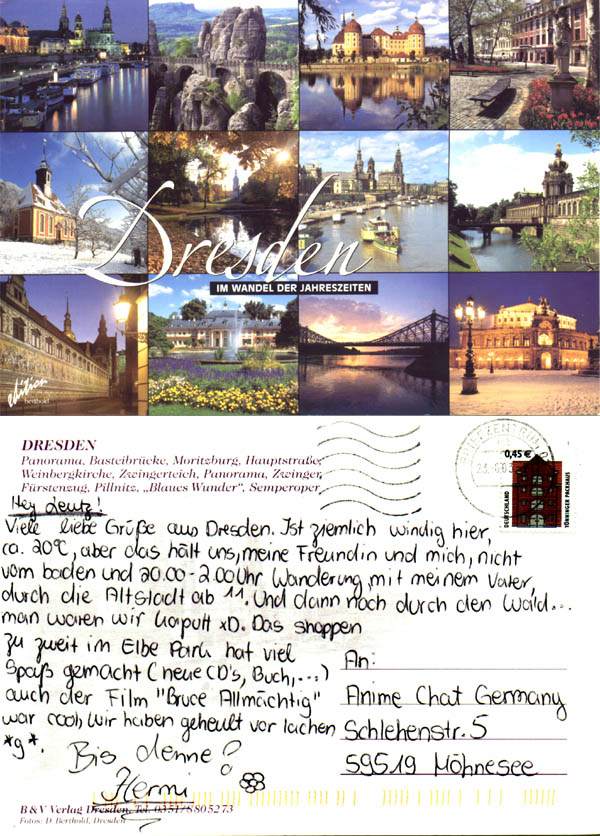 Dresden
IM WANDEL DER JAHRESZEITEN
edition
berthold
DRESDEN
Panorama, Basteibrücke, Moritzburg, Hauptstraße,
Weinbergkirche, Zwingerteich, Panorama, Zwinger,
Fürstenzug, Pillnitz, „Blaues Wunder“, Semperoper
BRIEFZENTRUM
0,45 €
DEUTSCHLAND
TÖNNINGER PACKHAUS
Hey Leutz!
Viele liebe Grüße aus Dresden. Ist ziemlich windig hier,
ca. 20°C, aber das hält uns, meine Freundin und mich, nicht
vom baden und 20.00-2.00 Uhr Wanderung, mit meinem Vater,
durch die Altstadt ab 11. Und dann noch durch den Wald...
man waren wir kaputt xD. Das shoppen
zu zweit im Elbe Park hat viel
Spaß gemacht (neue CD's, Buch,...)
auch der Film "Bruce Allmächtig"
war cool, wir haben geheult vor lachen
*g*.
Bis denne!
Hermi
An:
Anime Chat Germany
Schlehenstr. 5
59519 Möhnesee
B&V Verlag Dresden, Tel. 0351/8805273
Fotos: D. Berthold, Dresden